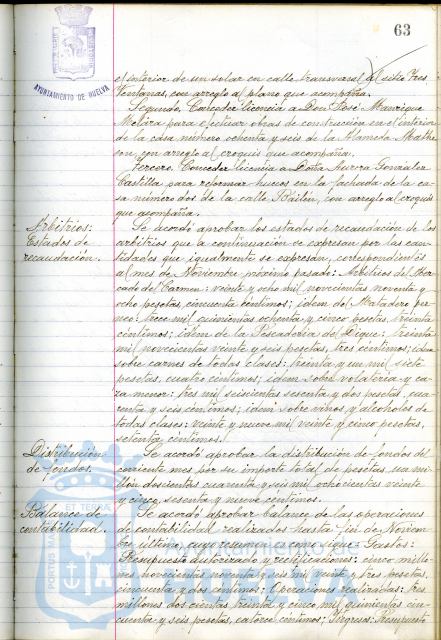 63
AYUNTAMIENTO DE HUELVA
el interior de un solar en calle transversal al sitio Tres
Ventanas, con arreglo al plano que acompaña.
Segundo. Conceder licencia a Don José Manrique
para efectuar obras de construcción en el interior
de la casa número ochenta y seis de la Alameda
con arreglo al croquis que acompaña.
Tercero. Conceder licencia a Doña Aurora González
Castilla, para reformar huecos en la fachada de la ca-
sa número dos de la calle Bailén, con arreglo al croquis
que acompaña.
Arbitrios:
Estados de
recaudación.
Se acordó aprobar los estados de recaudación de los
arbitrios que a continuación se expresan por las can-
tidades que igualmente se expresan, correspondientes
al mes de Noviembre próximo pasado: Arbitrios del Mer-
cado del Carmen: veinte y ocho mil novecientas noventa y
ocho pesetas, cincuenta céntimos; idem del Matadero per-
neo: trece mil quinientas ochenta y cinco pesetas, treinta
céntimos; idem de la Pescadería del Dique: treinta
mil novecientas veinte y seis pesetas, tres céntimos; idem
sobre carnes de todas clases: treinta y un mil siete
pesetas, cuatro céntimos; idem sobre volatería y ca-
za menor: tres mil seiscientas sesenta y dos pesetas, cua-
renta y seis céntimos; idem sobre vinos y alcoholes de
todas clases: veinte y nueve mil veinte y cinco pesetas,
setenta céntimos.
Distribución
de fondos.
Se acordó aprobar la distribución de fondos del
corriente mes por su importe total de pesetas un mi-
llón doscientas cuarenta y seis mil ochocientas veinte
y cinco, sesenta y nueve céntimos.
Balance de
contabilidad.
Se acordó aprobar balance de las operaciones
de contabilidad realizadas hasta fin de Noviem-
bre último, cuyo resumen es como sigue: Gastos:
Presupuesto autorizado y rectificaciones: cinco millo-
nes novecientas noventa y seis mil veinte y tres pesetas,
cincuenta y dos céntimos; Operaciones realizadas: tres
millones doscientas treinta y cinco mil quinientas cin-
cuenta y seis pesetas, catorce céntimos; Ingresos: Presupuesto
PORTUS MARIS ET TERRAE
Ayuntamiento de